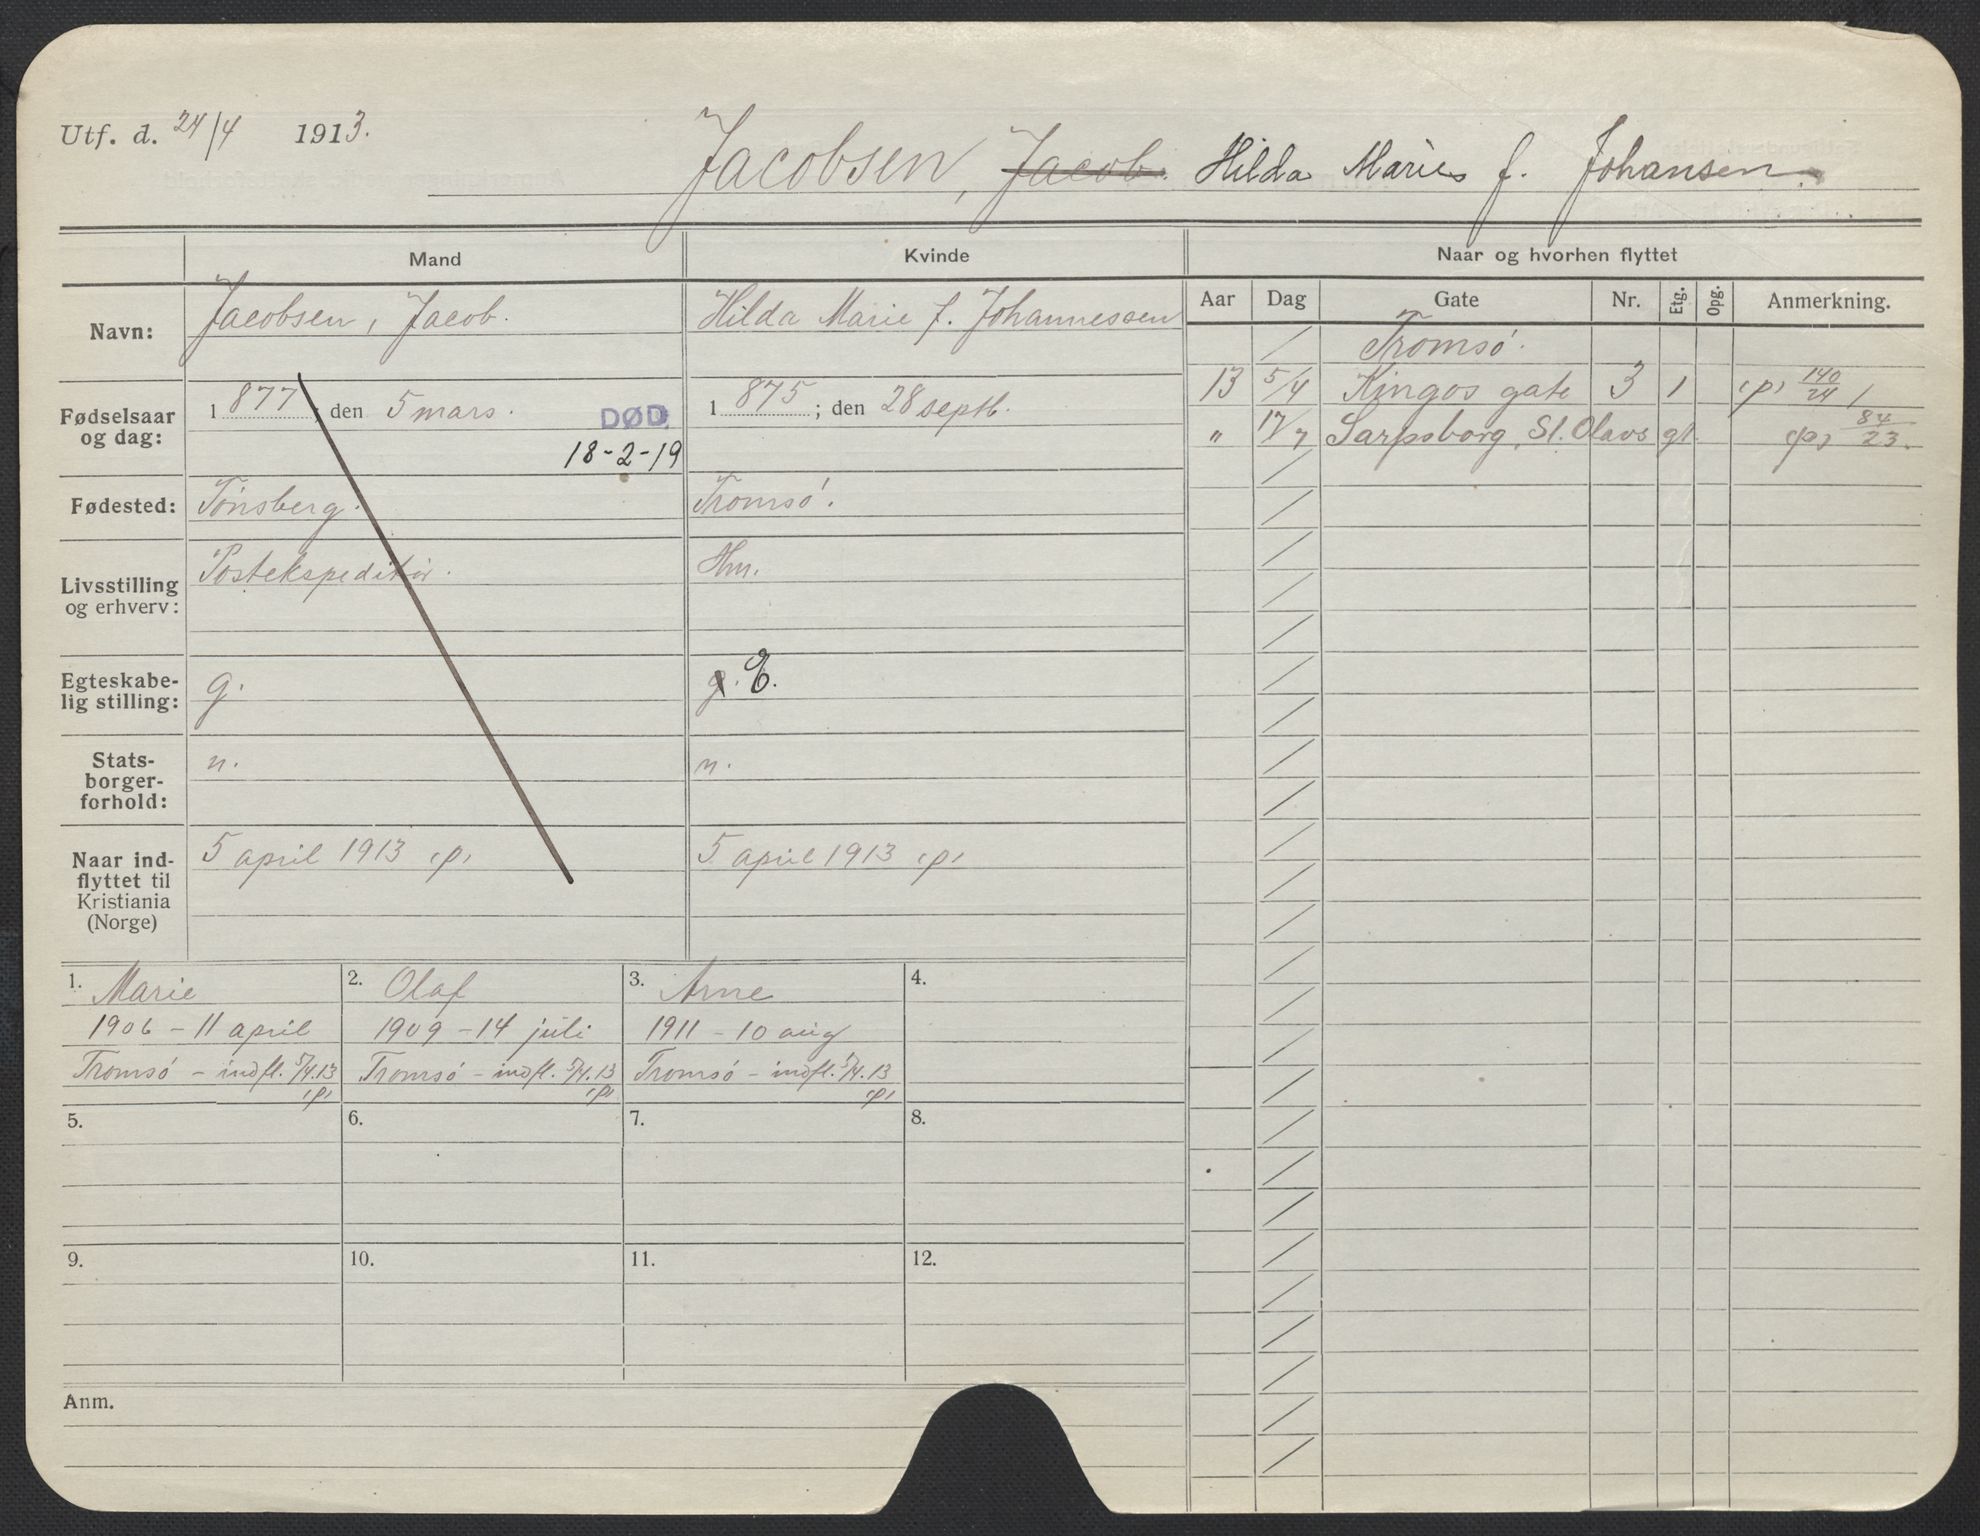 Utf. d. 24/4 1913.
Jacobsen, Jacob. Hilda Marie f. Johansen.
Mand
Kvinde
Naar og hvorhen flyttet
Navn:
Jacobsen, Jacob.
Hilda Marie f. Johannessen
Fødselsaar
og dag:
1877; den 5 mars.
DØD
18-2-19
1875; den 28 septb.
Fødested:
Tønsberg.
Tromsø.
Livsstilling
og erhverv:
Postekspeditør.
Hm.
Egteskabe-
lig stilling:
g.
g. E.
Stats-
borger-
forhold:
n.
n.
Naar ind-
flyttet til
Kristiania
(Norge)
5 april 1913 (p)
5 april 1913 (p)
Aar Dag Gate Nr. Etg. Opg. Anmerkning.
Tromsø.
13 5/4 Kingos gate 3 1 (p) 140/24 1
" 17/7 Sarpsborg, St. Olavs gt. (p) 84/23.
1. Marie
1906 - 11 april
Tromsø - indfl. 5/4.13
(p)
2. Olaf
1909 - 14 juli
Tromsø - indfl. 5/4.13
(p)
3. Arne
1911 - 10 aug
Tromsø - indfl. 5/4.13
(p)
4.
5.
6.
7.
8.
9.
10.
11.
12.
Anm.